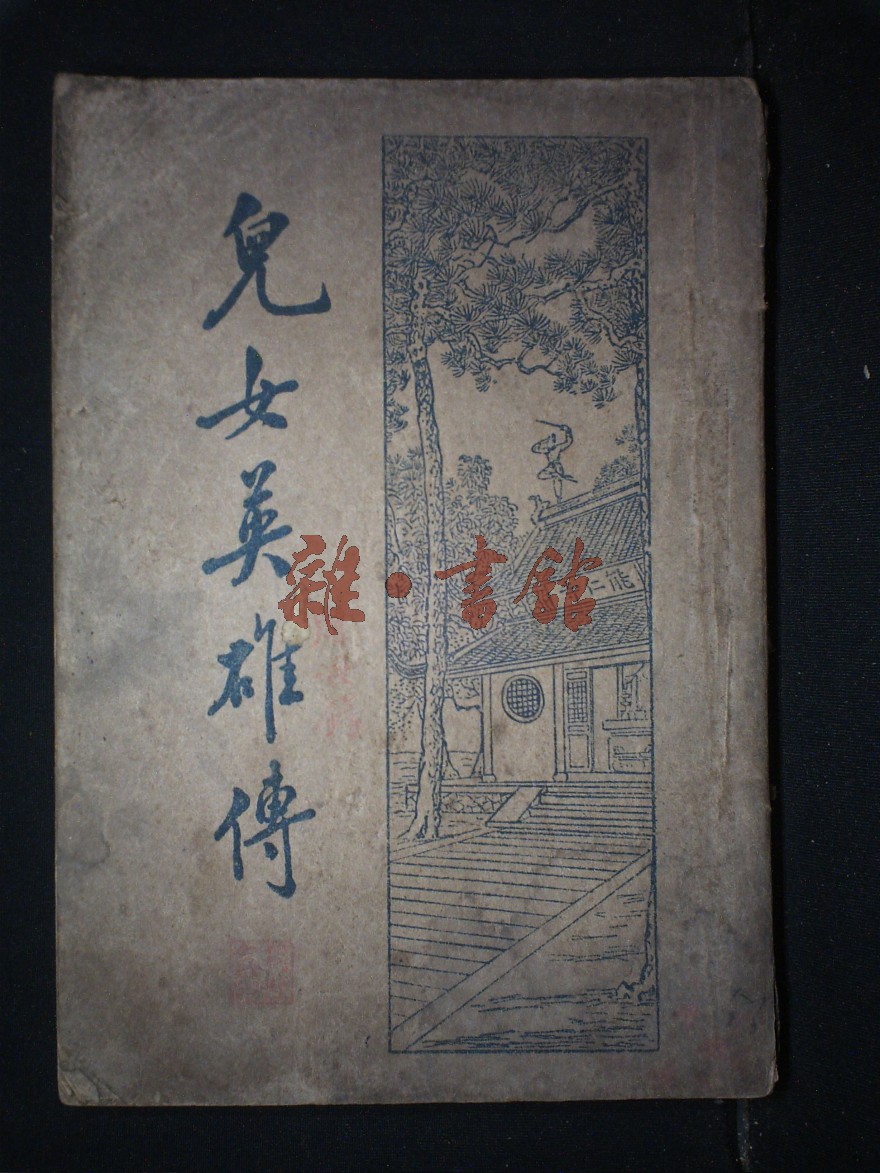 兒女英雄傳
雜·書館